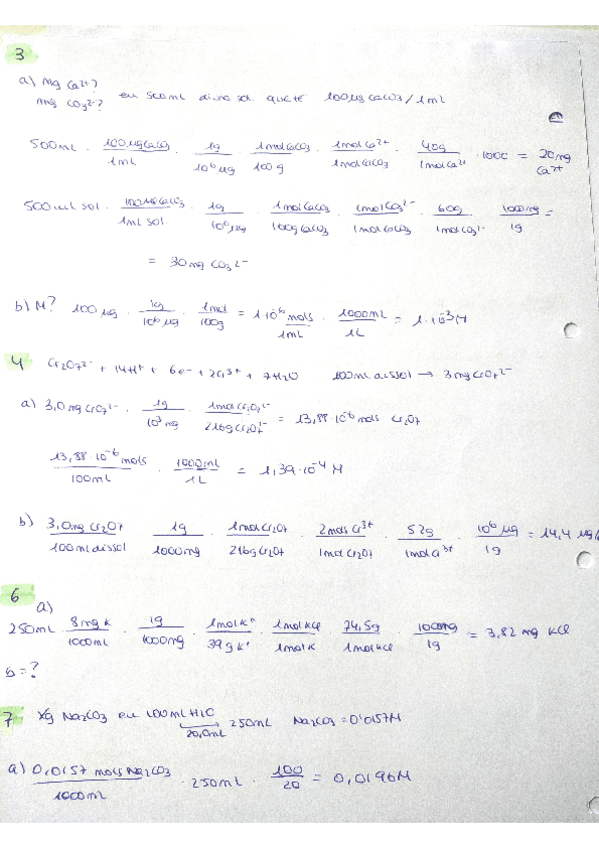 3
a) mg Ca²⁺?
mg CO₃²⁻? en 500ml d'una sol. que té 100µg CaCO3 / 1mL
500mL · 100µg CaCO3 / 1mL · 1g / 10⁶ µg · 1mol CaCO3 / 100g · 1mol Ca²⁺ / 1mol CaCO3 · 40g / 1mol Ca²⁺ · 1000 = 20mg Ca²⁺
500ml sol · 100µg CaCO3 / 1mL sol · 1g / 10⁶ µg · 1mol CaCO3 / 100g CaCO3 · 1mol CO3²⁻ / 1mol CaCO3 · 60g / 1mol CO3²⁻ 1000mg / 1g =
= 30mg CO3²⁻
b) M? 100 µg · 1g / 10⁶ µg · 1mol / 100g = 1·10⁻⁶ mols / 1mL · 1000mL / 1L = 1·10⁻³ M
4 Cr2O7²⁻ + 14H⁺ + 6e⁻ → 2Cr³⁺ + 7H2O 100ml dissol → 3mg Cr2O7²⁻
a) 3,0mg Cr2O7²⁻ · 1g / 10³ mg · 1mol Cr2O7²⁻ / 216g Cr2O7²⁻ = 13,88·10⁻⁶ mols Cr2O7
13,88·10⁻⁶ mols / 100mL · 1000mL / 1L = 1,39·10⁻⁴ M
b) 3,0mg Cr2O7 / 100ml dissol · 1g / 1000mg · 1mol Cr2O7 / 216g Cr2O7 · 2mols Cr³⁺ / 1mol Cr2O7 · 52g / 1mol Cr³⁺ · 10⁶ µg / 1g = 14,4 µg/
6
a)
250mL · 8mg K / 1000mL · 1g / 1000mg · 1mol K⁺ / 39g K⁺ · 1mol KCl / 1mol K · 74,5g / 1mol KCl · 1000mg / 1g = 3,82 mg KCl
b = ?
7 Xg Na2CO3 en 100ml H2O 250mL Na2CO3 = 0'0157M
20,0mL
a) 0,0157 mols Na2CO3 / 1000mL · 250mL · 100 / 20 = 0,0196M